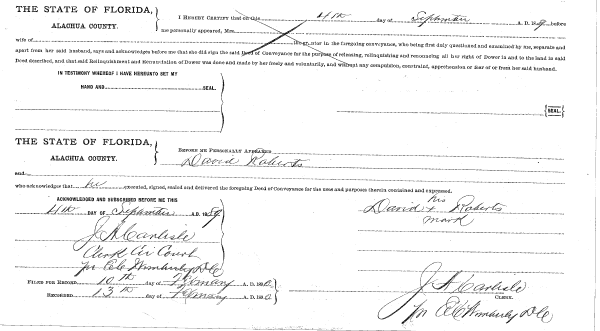 THE STATE OF FLORIDA,
ALACHUA COUNTY.
I HEREBY CERTIFY that on this 4th day of September A. D. 18 before
me personally appeared, Mrs.
wife of the grantor in the foregoing conveyance, who being first duly questioned and examined by me, separate and
apart from her said husband, says and acknowledges before me that she did sign the said Deed of Conveyance for the purpose of releasing, relinquishing and renouncing all her right of Dower in and to the land in said
Deed described, and that said Relinquishment and Renunciation of Dower was done and made by her freely and voluntarily, and without any compulsion, constraint, apprehension or fear of or from her said husband.
IN TESTIMONY WHEREOF I HAVE HEREUNTO SET MY
HAND AND SEAL.
{SEAL.}
THE STATE OF FLORIDA,
ALACHUA COUNTY.
BEFORE ME PERSONALLY APPEARED
David Roberts
and
who acknowledges that he executed, signed, sealed and delivered the foregoing Deed of Conveyance for the uses and purposes therein contained and expressed.
ACKNOWLEDGED AND SUBSCRIBED BEFORE ME THIS
4th DAY OF September A.D. 18
his
David + Roberts
mark
J A Carlisle
Clerk Cir Court
pr E C Wimberly D C
FILED FOR RECORD 10th day of January A. D. 18
RECORDED 13th day of January A.D. 18
J A Carlisle
CLERK.
pr E C Wimberly D C